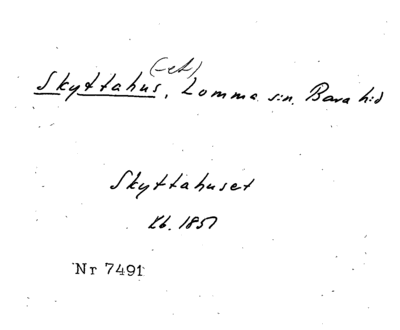 Skyttahus(-et), Lomma sn. Bara hd
Skyttahuset
Kb. 1857
Nr 7491